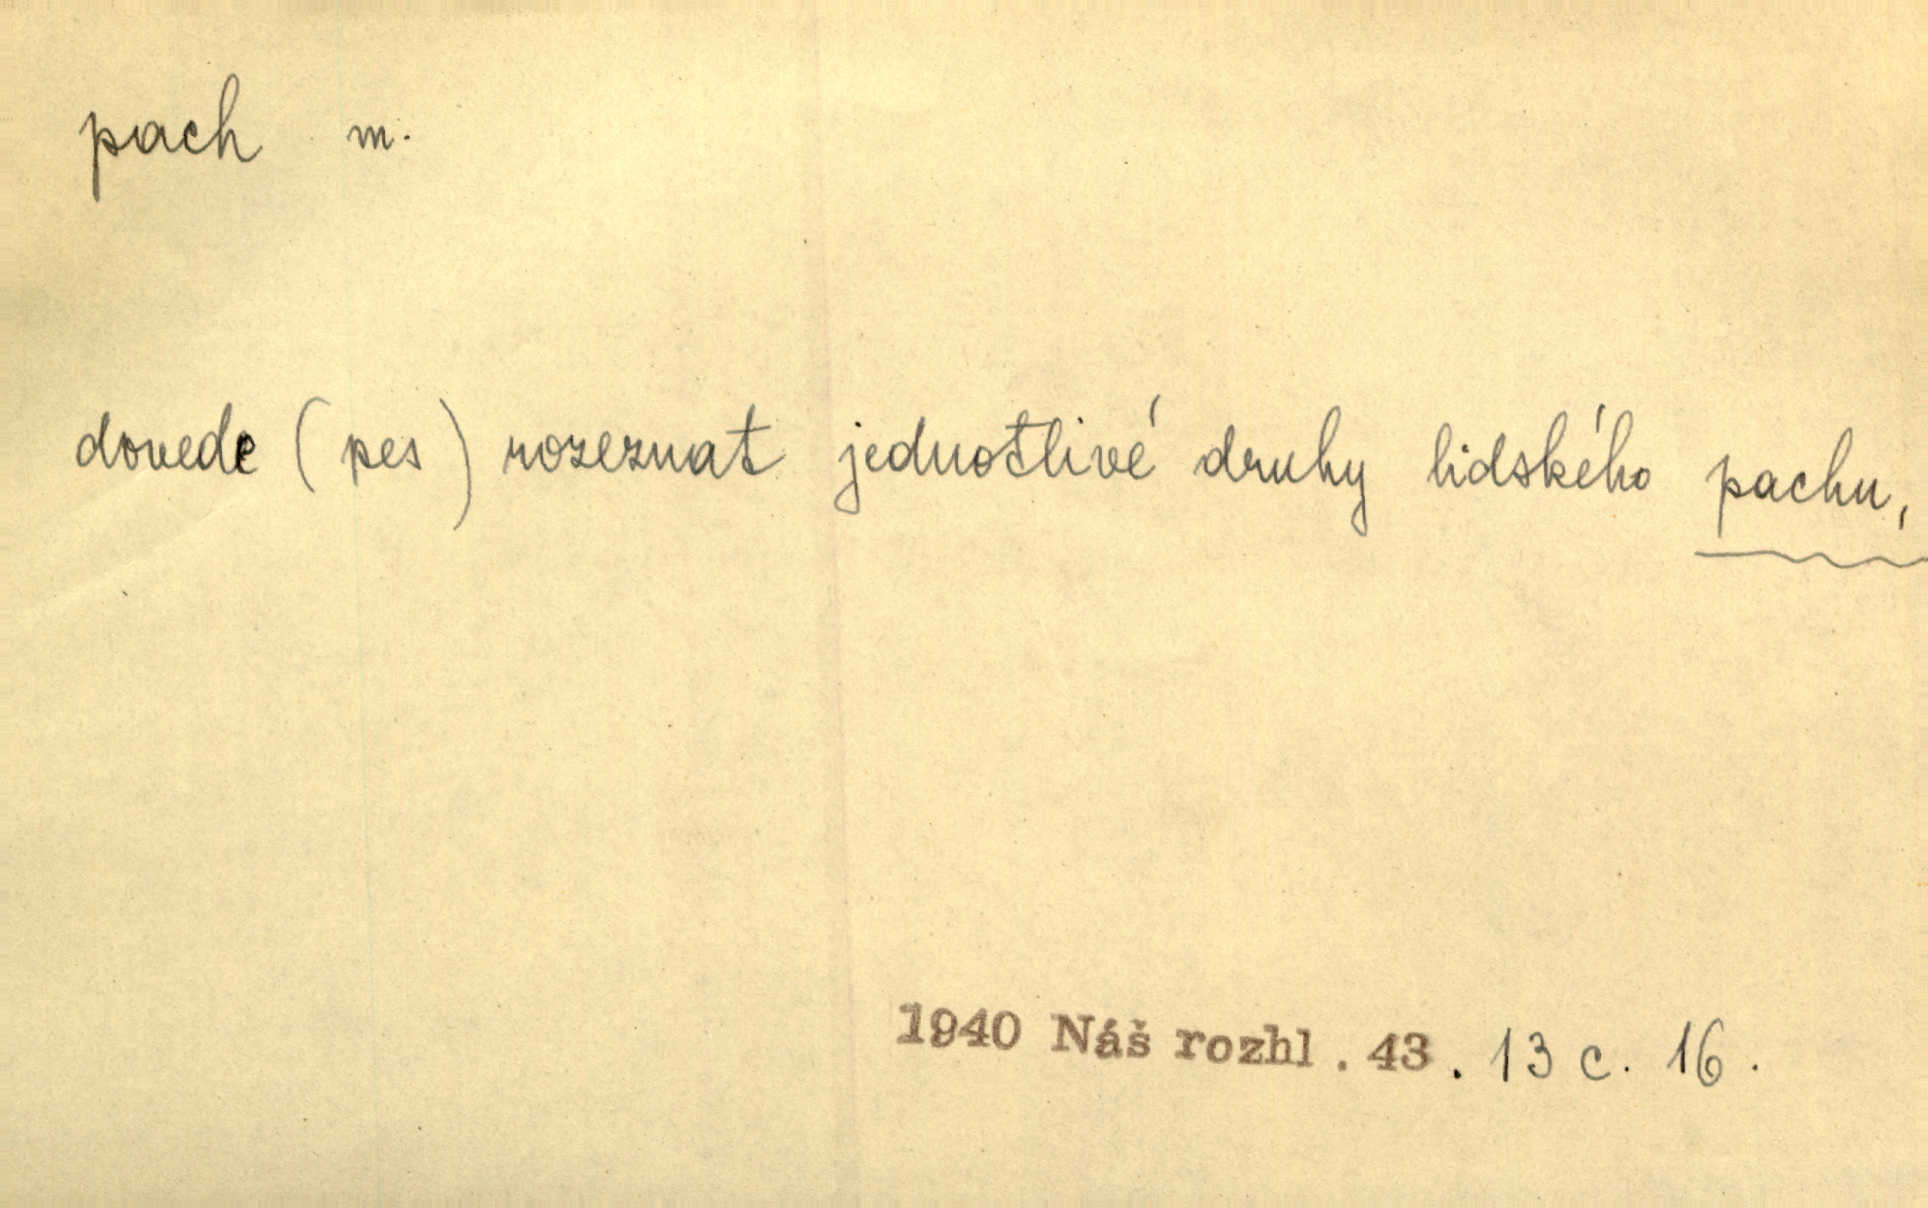 pach m.
dovede (pes) rozeznat jednotlivé druhy lidského pachu,
1940 Náš rozhl. 43. 13 c. 16.